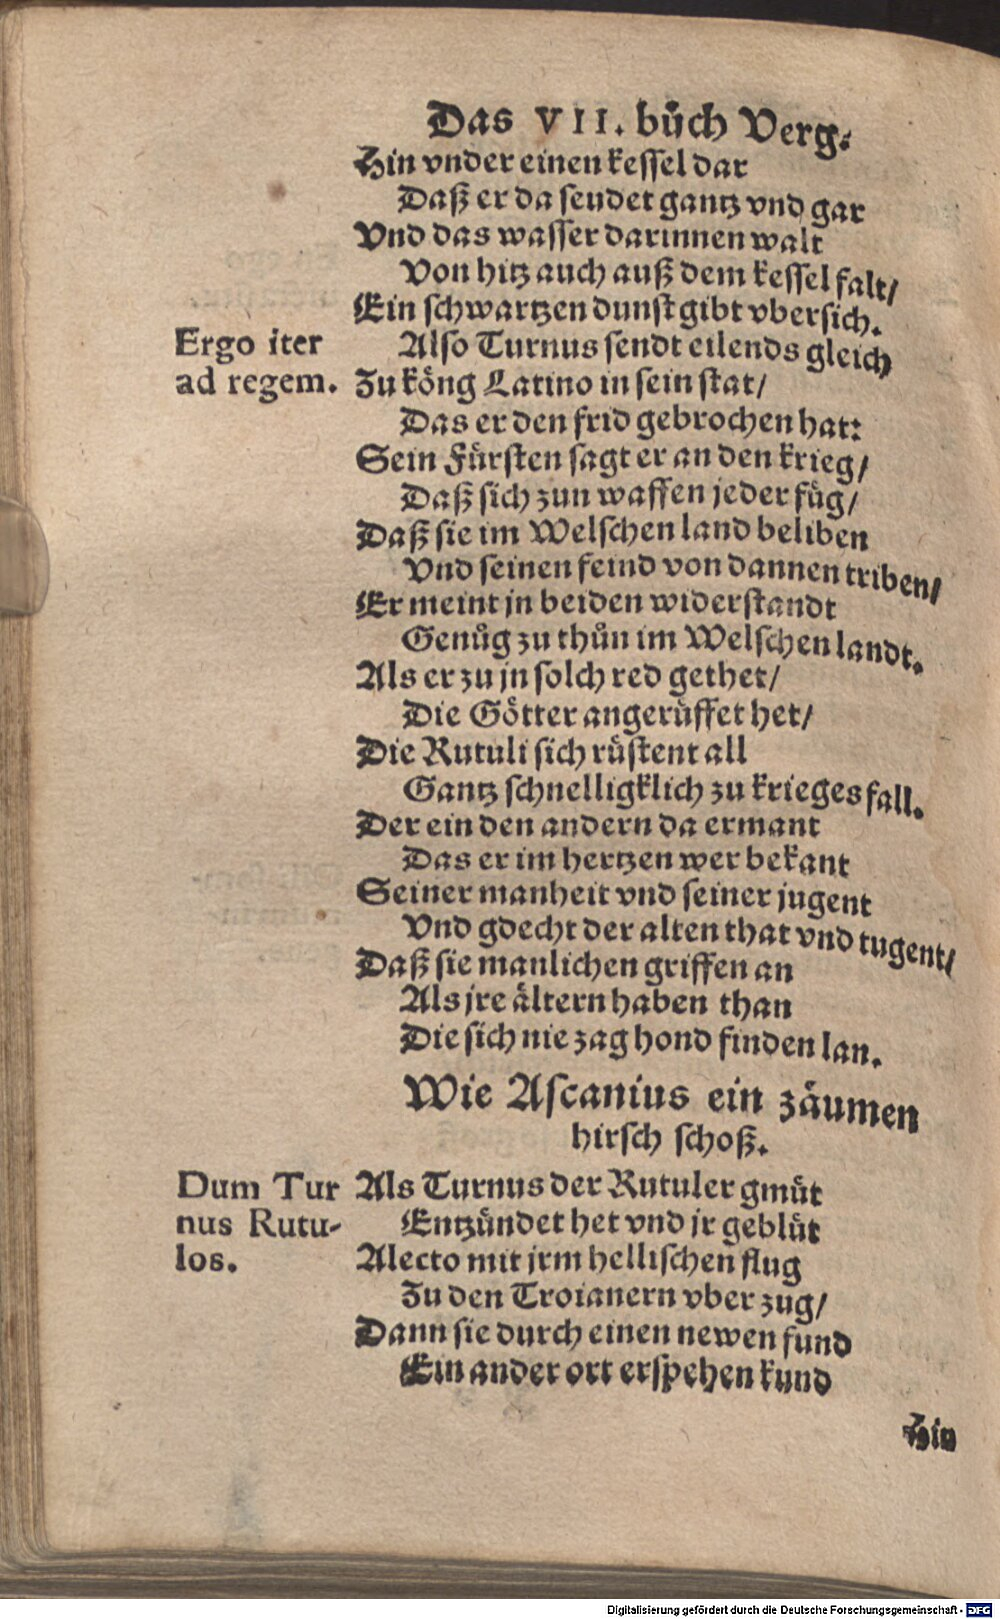 Das VII. bůch Verg.
Hin vnder einen kessel dar
Daß er da seudet gantz vnd gar
Vnd das wasser darinnen walt
Von hitz auch auß dem kessel falt/
Ein schwartzen dunst gibt vbersich.
Ergo iter
ad regem.
Also Turnus sendt eilends gleich
Zu köng Latino in sein stat/
Das er den frid gebrochen hat:
Sein Fürsten sagt er an den krieg/
Daß sich zun waffen jeder fůg/
Daß sie im Welschen land beliben
Vnd seinen feind von dannen triben/
Er meint jn beiden widerstandt
Genůg zu thůn im Welschen landt.
Als er zu jn solch red gethet/
Die Götter angerůffet het/
Die Rutuli sich rüstent all
Gantz schnelligklich zu krieges fall.
Der ein den andern da ermant
Das er im hertzen wer bekant
Seiner manheit vnd seiner jugent
Vnd gdecht der alten that vnd tugent/
Daß sie manlichen griffen an
Als jre ältern haben than
Die sich nie zag hond finden lan.
Wie Ascanius ein zäumen
hirsch schoß.
Dum Tur
nus Rutu-
los.
Als Turnus der Rutuler gmüt
Entzündet het vnd jr geblüt
Alecto mit jrm hellischen flug
Zu den Troianern vber zug/
Dann sie durch einen newen fund
Ein ander ort erspehen kund
Hin
Digitalisierung gefördert durch die Deutsche Forschungsgemeinschaft - DFG